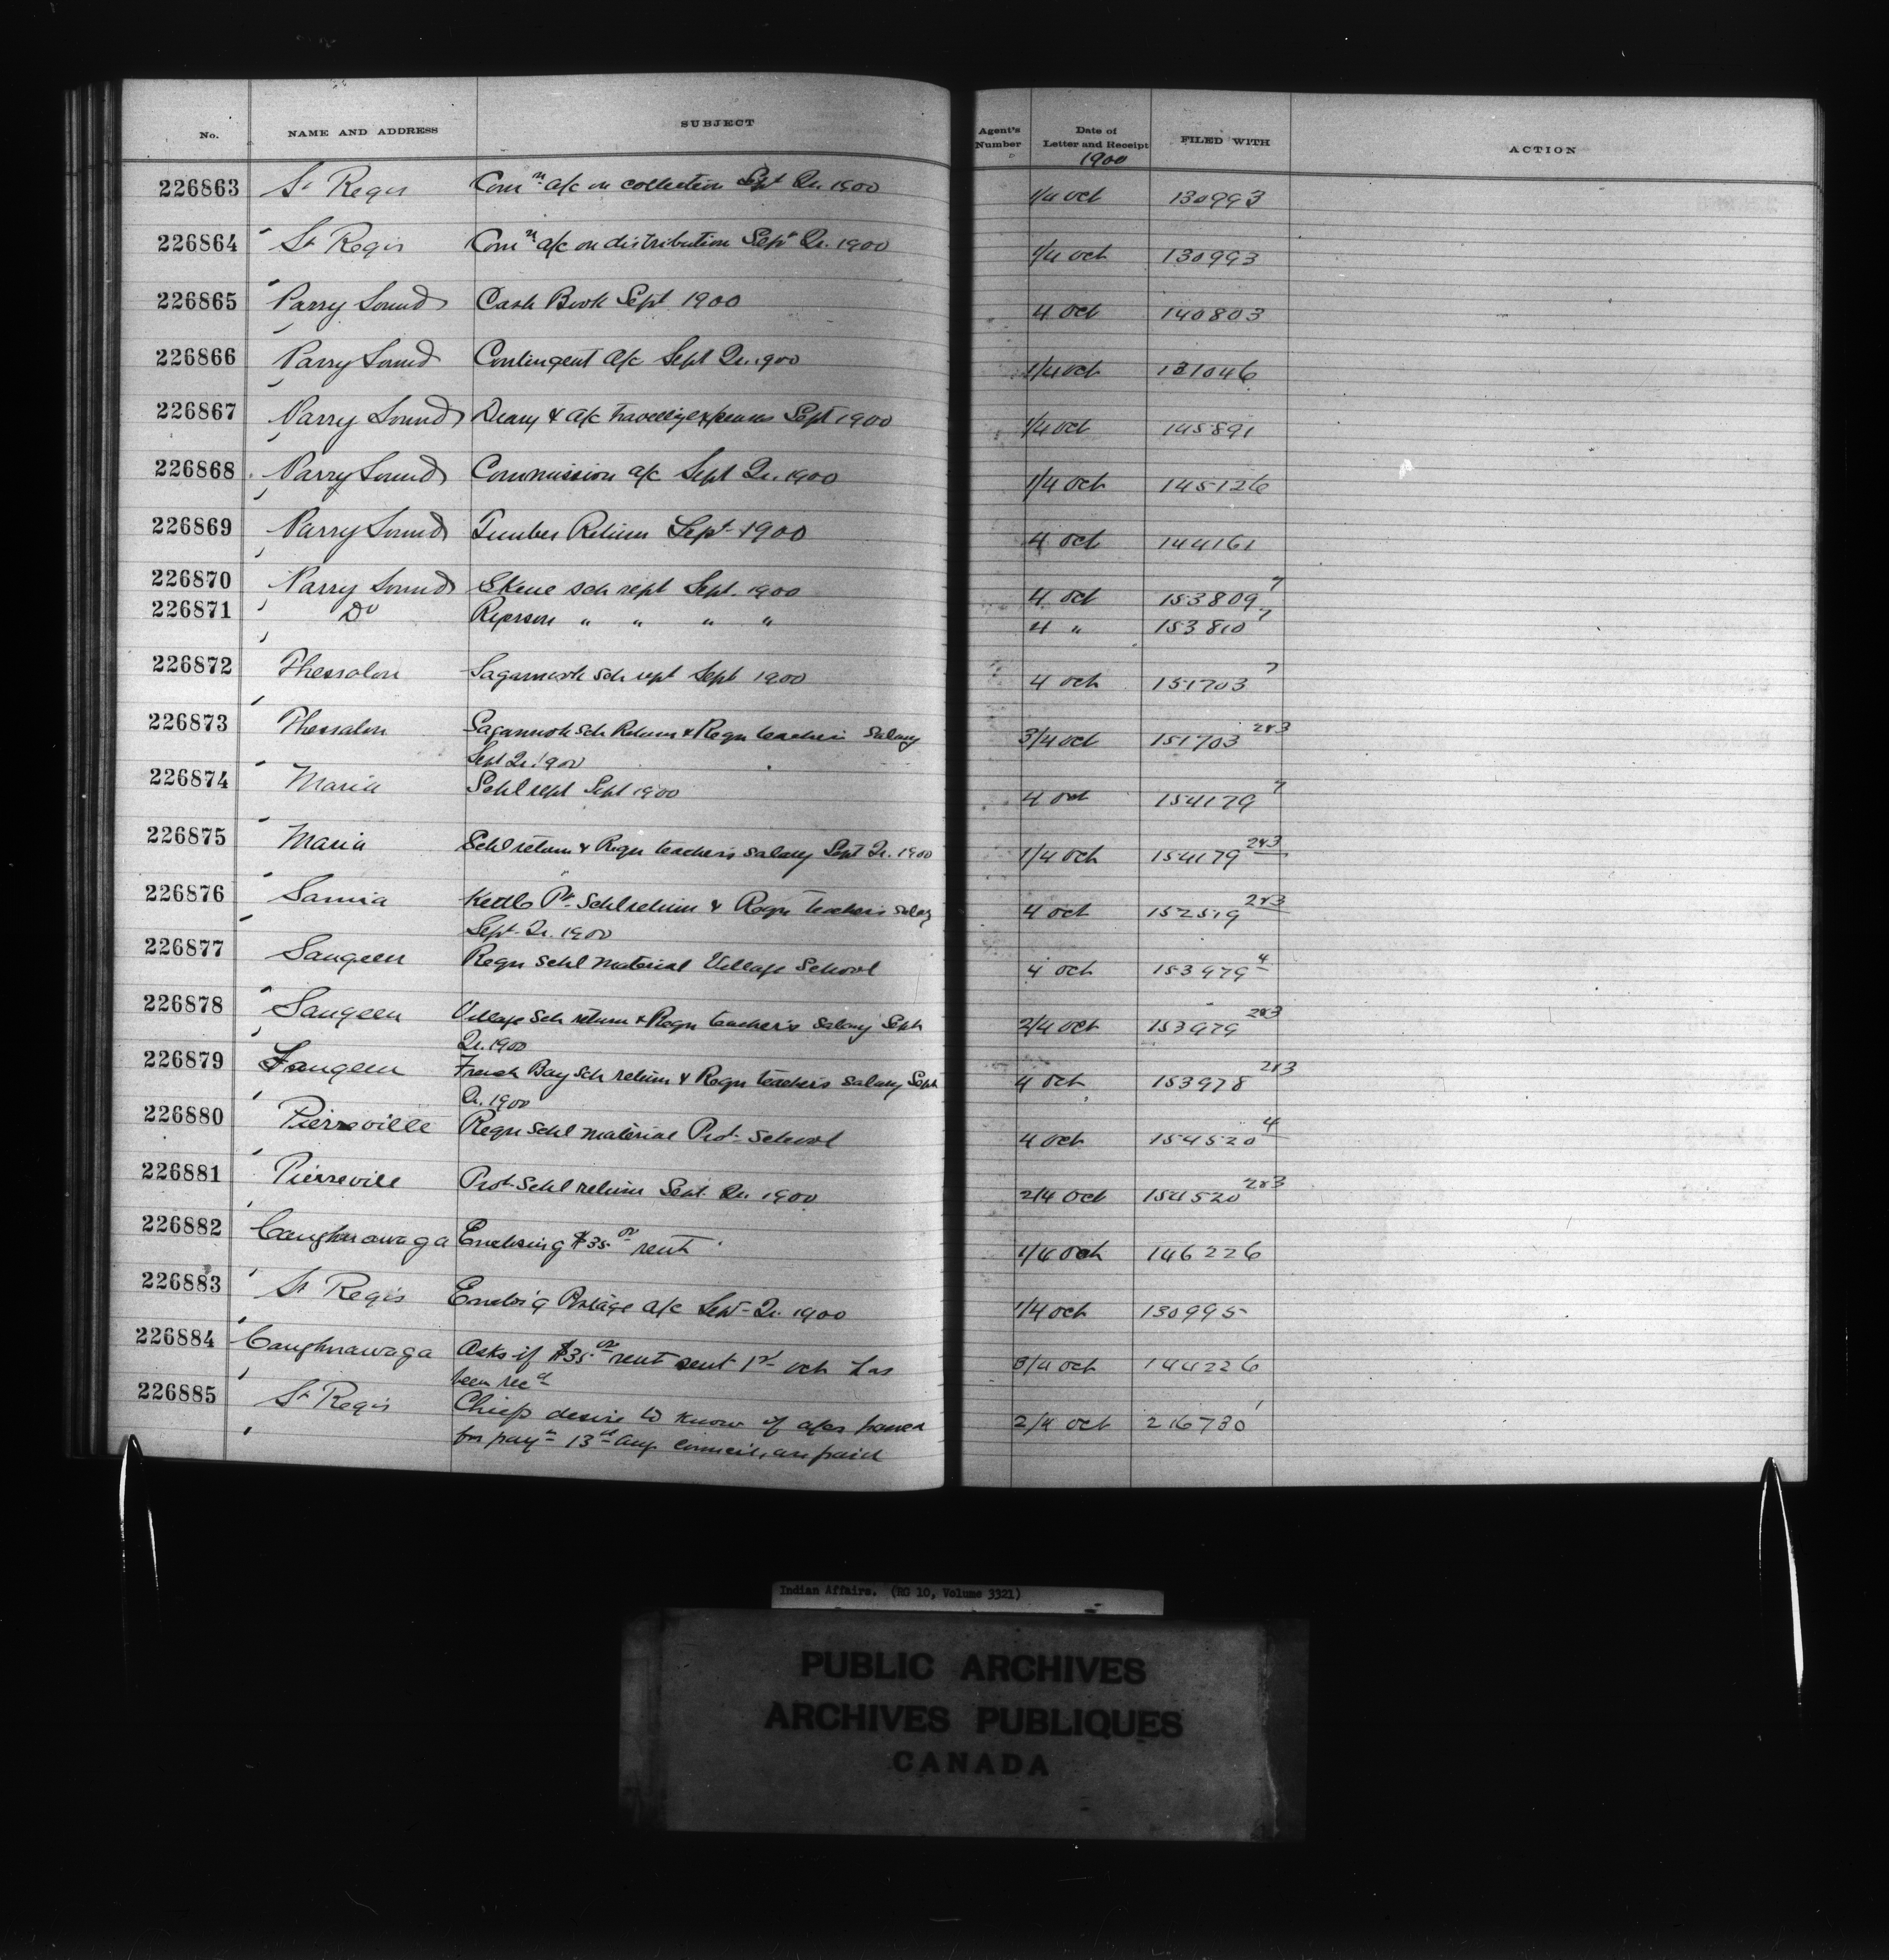 No. NAME AND ADDRESS SUBJECT Agent's Number Date of Letter and Receipt FILED WITH ACTION
1900
226863 St Regis Comn a/c on collection Sept Qr. 1900 1/4 Oct 130993
226864 St Regis Comn a/c on distribution Sept Qr. 1900 1/4 Oct 130993
226865 Parry Sound Cash Book Sept 1900 4 Oct 140803
226866 Parry Sound Contingent a/c Sept Qr. 1900 1/4 Oct 131046
226867 Parry Sound Diary & a/c travellig expenses Sept 1900 1/4 Oct 145891
226868 Parry Sound Commission a/c Sept Qr. 1900 1/4 Oct 145126
226869 Parry Sound Timber Return Sept 1900 4 Oct 144161
226870 Parry Sound Skene sch rept Sept. 1900 4 Oct 153809 7
226871 Do Ryerson " " " " 4 " 153810 7
226872 Thessalon Sagamook sch rept Sept 1900 4 Oct 151703 7
226873 Thessalon Sagamook sch Return & Reqn teachers salary 3/4 Oct 151703 2&3
Sept Qr. 1900
226874 Maria Schl rept Sept 1900 4 Oct 154179 7
226875 Maria Schl return & Reqn teacher's salary Sept Qr. 1900 1/4 Oct 154179 2&3
226876 Sarnia Kettle Pt Schl return & Reqn teacher's salary 4 Oct 152519 2&3
Sept. Qr. 1900
226877 Saugeen Reqn Schl material Village School 4 Oct 153979 4
226878 Saugeen Village Sch return & Reqn teacher's salary Sept 2/4 Oct 153979 2&3
Qr. 1900
226879 Saugeen French Bay Sch return & Reqn teacher's salary Sept 4 Oct 153978 2&3
Qr. 1900
226880 Pierreville Reqn Schl material Prot. School 4 Oct 154520 4
226881 Pierreville Prot. Schl return Sept. Qr. 1900 2/4 Oct 154520 2&3
226882 Caughnawaga Enclosing $35.00 rent 1/4 Oct 146226
226883 St Regis Enclos'g Postage a/c Sept Qr. 1900 1/4 Oct 130995
226884 Caughnawaga Asks if $35.00 rent sent 1st Oct has 3/4 Oct 144226
been recd
226885 St Regis Chiefs desire to know if a/cs passed 2/4 Oct 216730
for payn 13th Aug. council, are paid
Indian Affairs. (RG 10, Volume 3321)
PUBLIC ARCHIVES
ARCHIVES PUBLIQUES
CANADA